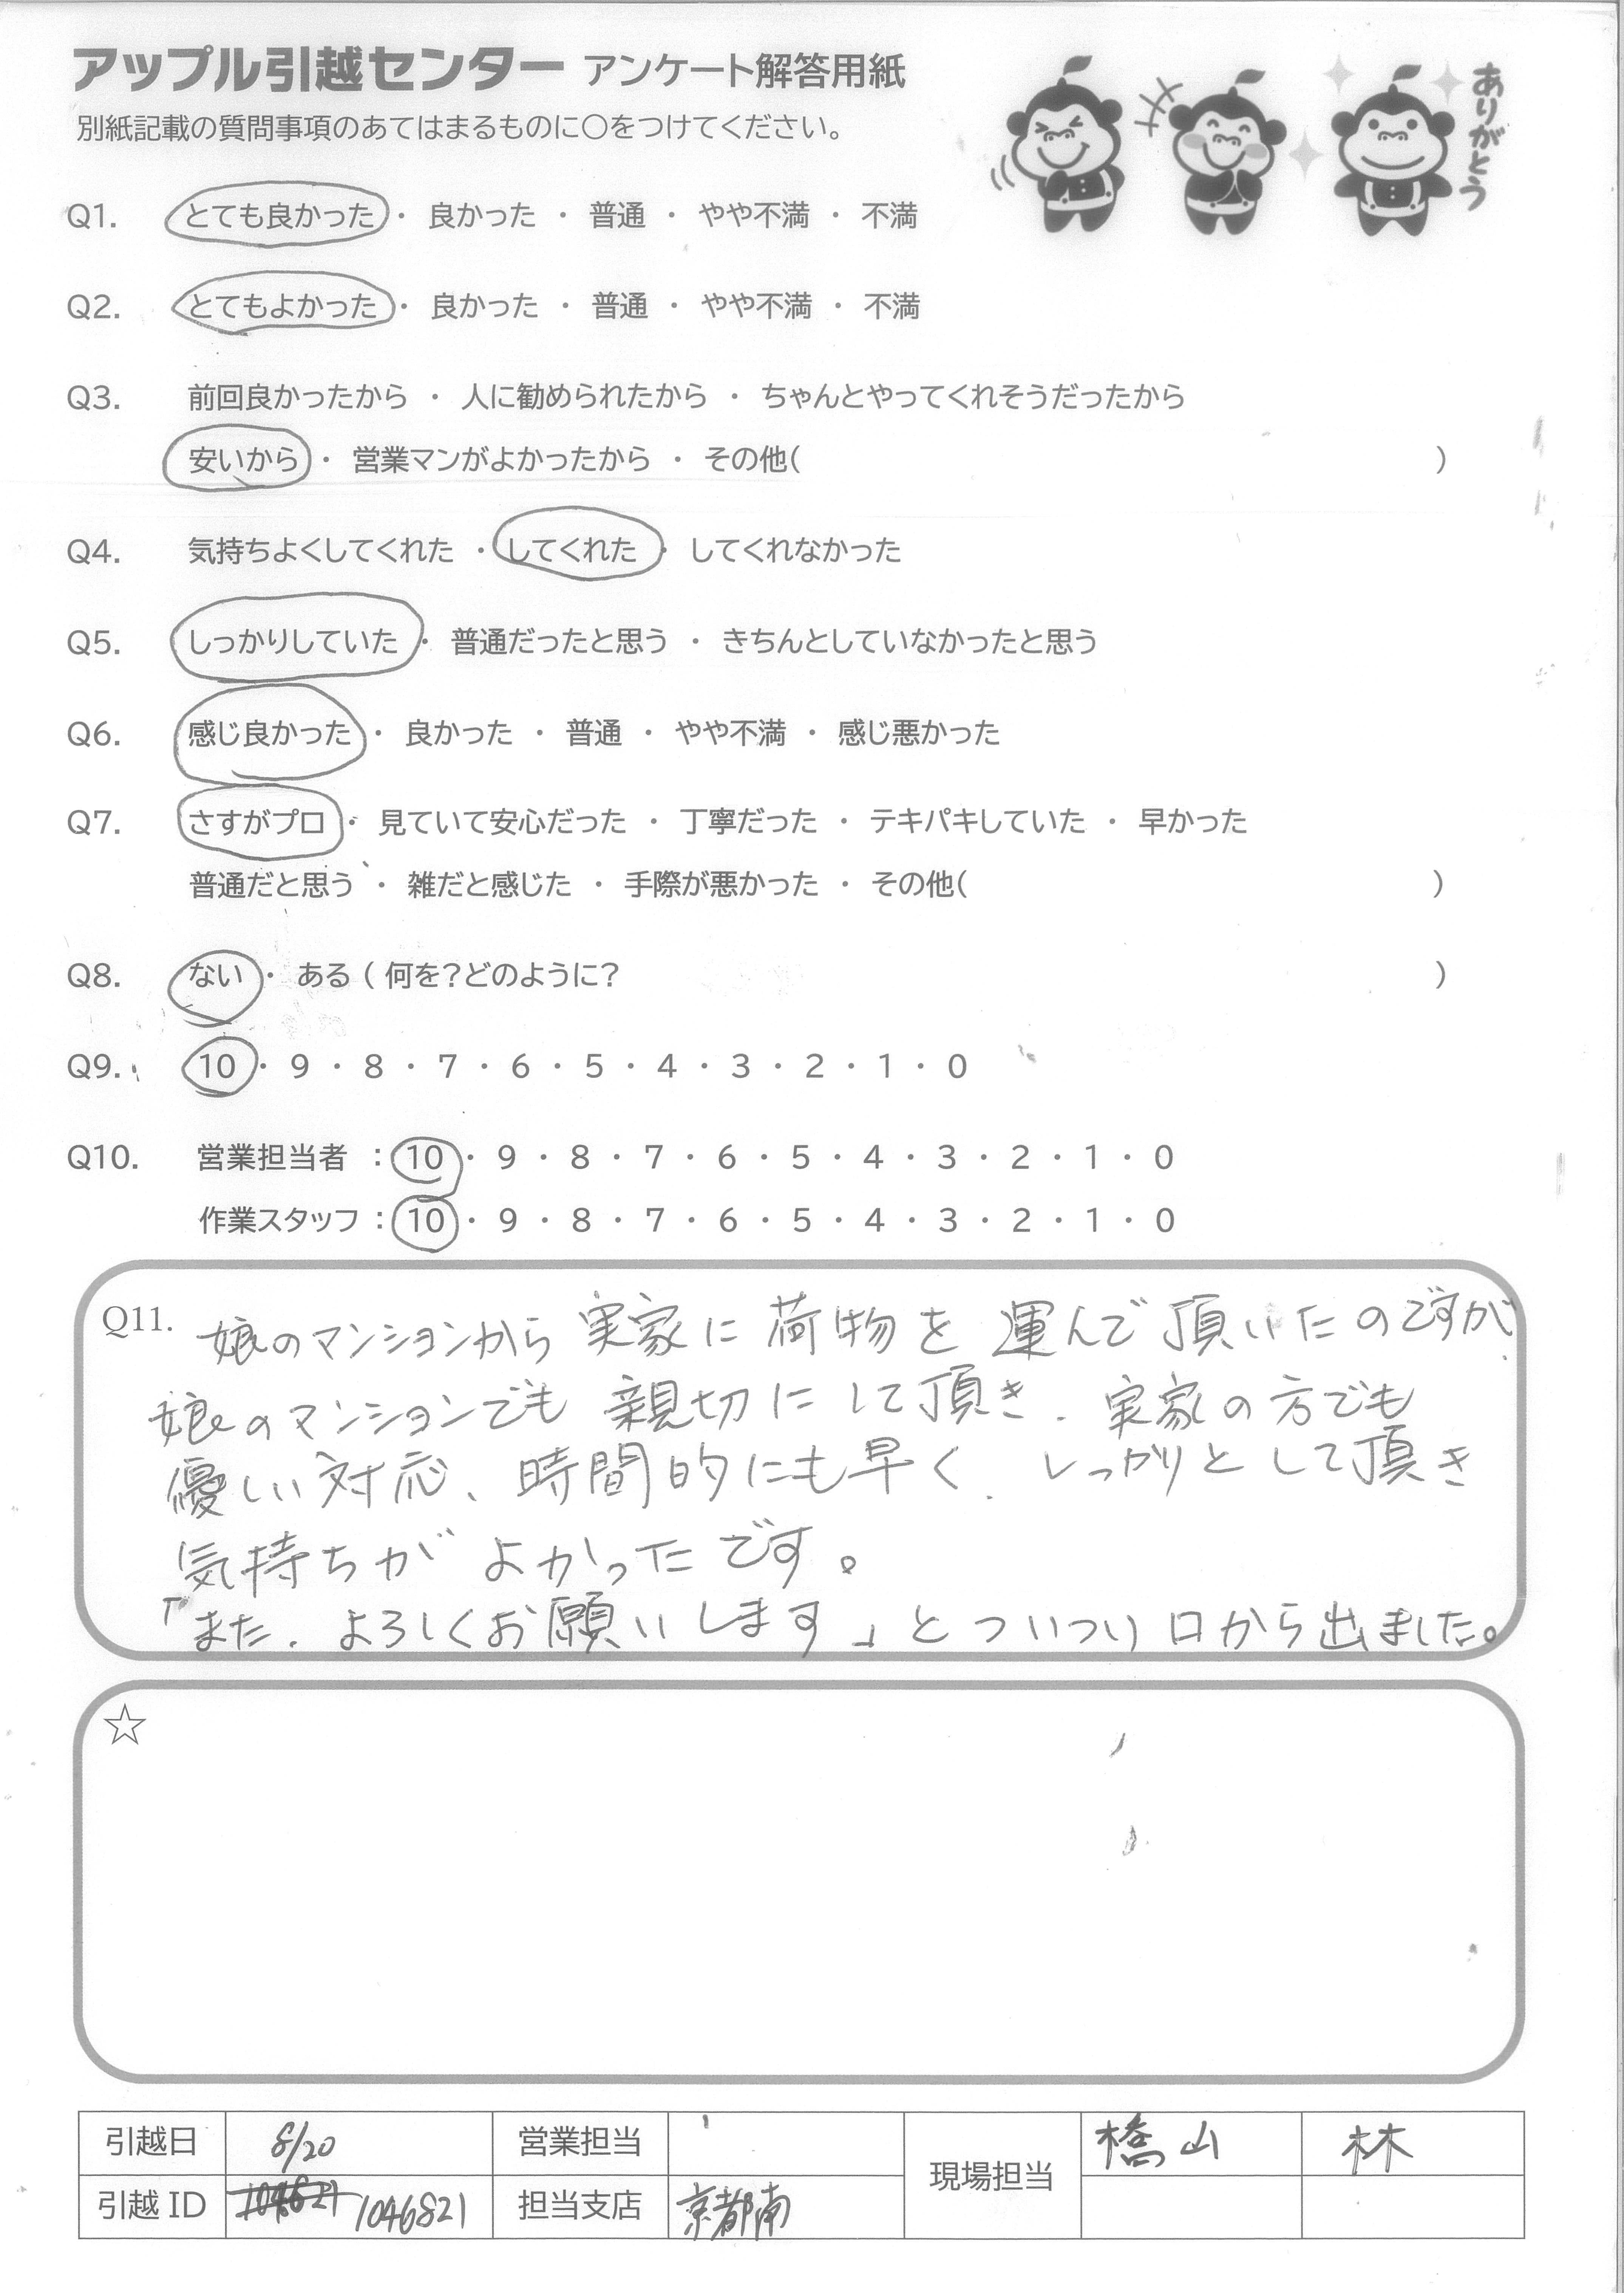 アップル引越センター アンケート解答用紙
ありがとう
別紙記載の質問事項のあてはまるものに○をつけてください。
Q1. とても良かった ・ 良かった ・ 普通 ・ やや不満 ・ 不満
Q2. とてもよかった ・ 良かった ・ 普通 ・ やや不満 ・ 不満
Q3. 前回良かったから ・ 人に勧められたから ・ ちゃんとやってくれそうだったから
安いから ・ 営業マンがよかったから ・ その他( )
Q4. 気持ちよくしてくれた ・ してくれた ・ してくれなかった
Q5. しっかりしていた ・ 普通だったと思う ・ きちんとしていなかったと思う
Q6. 感じ良かった ・ 良かった ・ 普通 ・ やや不満 ・ 感じ悪かった
Q7. さすがプロ ・ 見ていて安心だった ・ 丁寧だった ・ テキパキしていた ・ 早かった
普通だと思う ・ 雑だと感じた ・ 手際が悪かった ・ その他( )
Q8. ない ・ ある ( 何を?どのように? )
Q9. 10 ・ 9 ・ 8 ・ 7 ・ 6 ・ 5 ・ 4 ・ 3 ・ 2 ・ 1 ・ 0
Q10. 営業担当者 : 10 ・ 9 ・ 8 ・ 7 ・ 6 ・ 5 ・ 4 ・ 3 ・ 2 ・ 1 ・ 0
作業スタッフ : 10 ・ 9 ・ 8 ・ 7 ・ 6 ・ 5 ・ 4 ・ 3 ・ 2 ・ 1 ・ 0
Q11. 娘のマンションから実家に荷物を運んで頂いたのですが、
娘のマンションでも親切にして頂き、実家の方でも
優しい対応、時間的にも早く、しっかりとして頂き
気持ちがよかったです。
「また、よろしくお願いします」とついつい口から出ました。
☆
引越日 8/20 営業担当 現場担当 橋山 林
引越ID 104621 1046821 担当支店 京都南